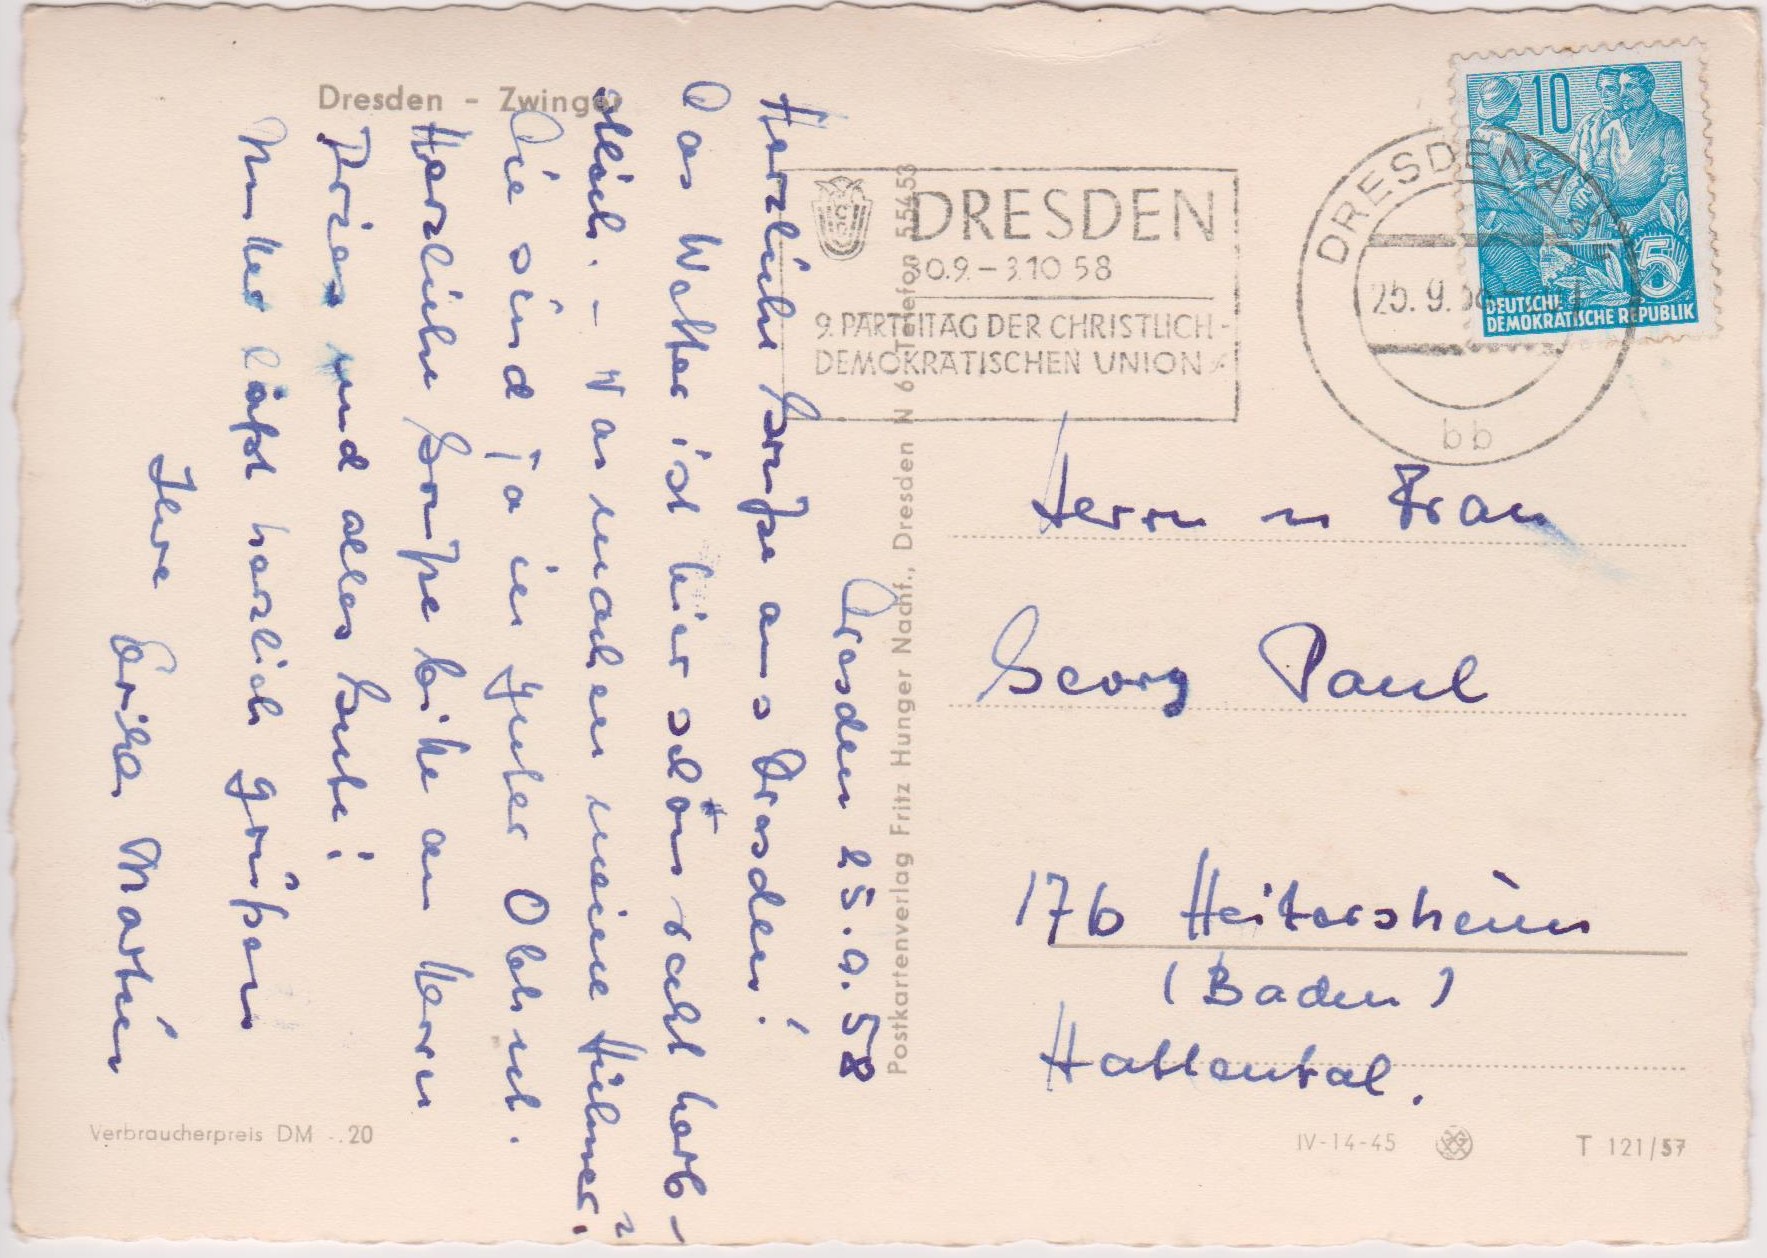 Dresden - Zwinger
Dresden 25.9.58
Herzliche Grüße aus Dresden!
Das Wetter ist hier schön recht herb-
stlich. - Was machen meine Hühner?
Die sind ja in guter Obhut.
Herzliche Grüße bitte an Herrn
und alles Gute!
läßt herzlich grüßen
Ihre Erika Martin
Verbraucherpreis DM -.20
Postkartenverlag Fritz Hunger Nachf., Dresden N 6 Telefon 55453
DRESDEN
30.9.-3.10 58
9. PARTEITAG DER CHRISTLICH-
DEMOKRATISCHEN UNION
DRESDEN
25.9.58
bb
10
5
DEUTSCHE
DEMOKRATISCHE REPUBLIK
Herrn u Frau
Georg Paul
17b Heitersheim
(Baden)
Hattental.
IV-14-45
T 121/57